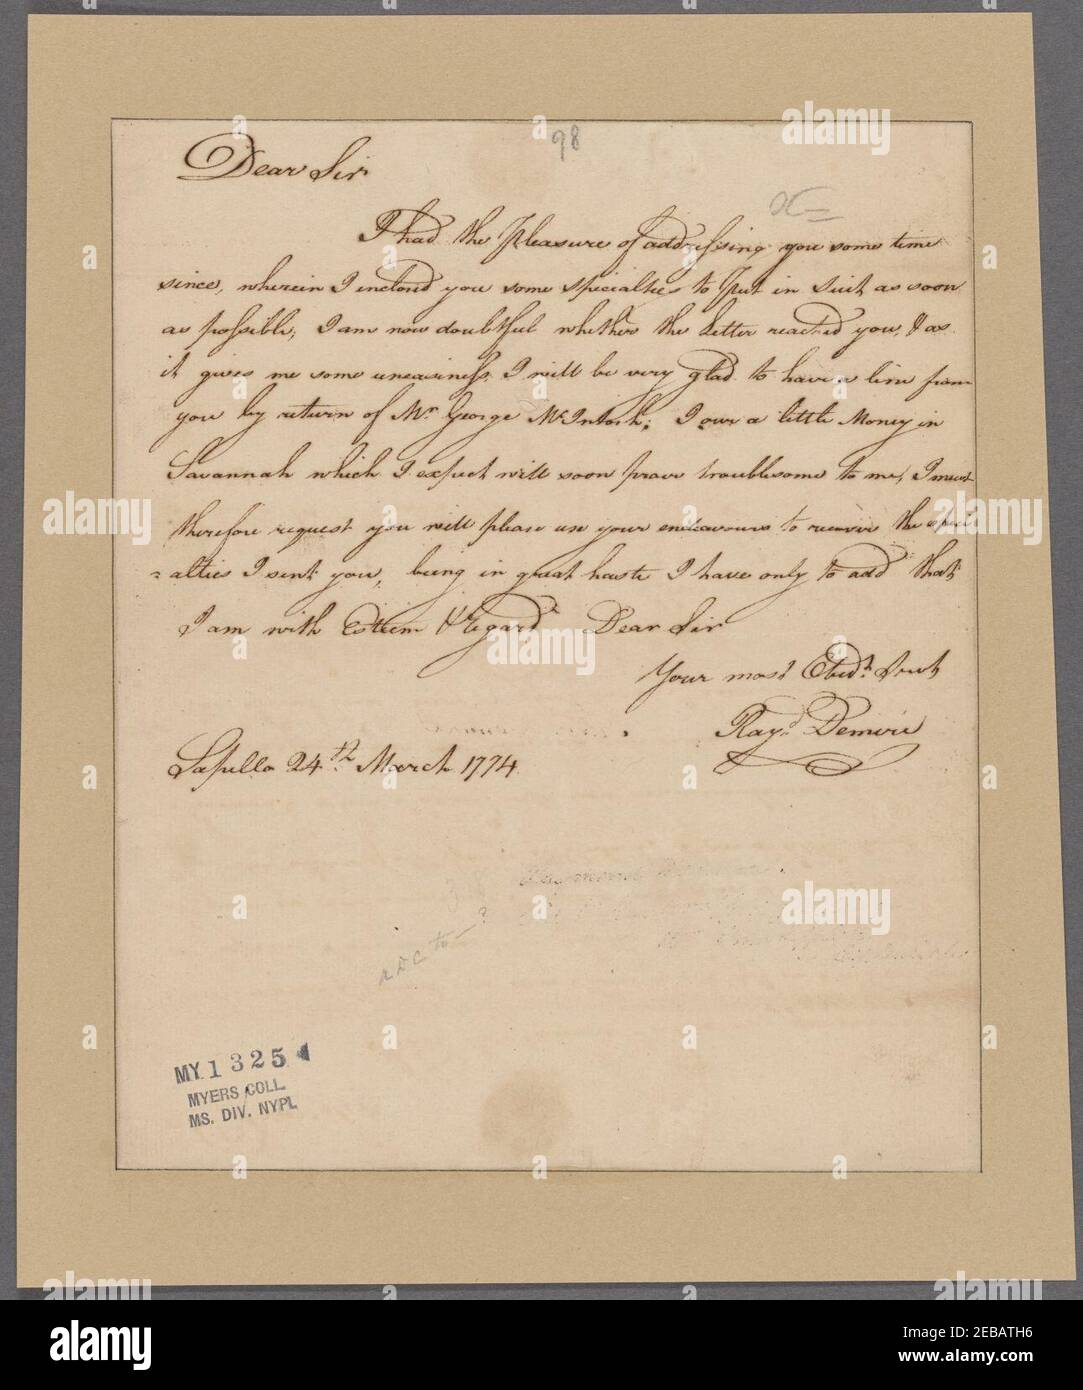 98
Dear Sir
I had the Pleasure of addressing you some time
since, wherein I inclosd you some specialties to Put in Suit as soon
as possible, I am now doubtful whether the Letter reached you, & as
it gives me some uneasiness, I will be very glad to have a line from
you by return of Mr George McIntosh; I owe a little Money in
Savannah which I expect will soon prove troublesome to me, I must
therefore request you will please use your endeavours to recover the speci
= alties I sent you, being in great haste I have only to add that
I am with Esteem & Regard Dear Sir
Your most Obedt. Servt
Rayd. Demere
Sapello 24th. March 1774
ADC to — ?
MY 1325
MYERS COLL.
MS. DIV. NYPL
alamy
Image ID: 2EBATH6
www.alamy.com